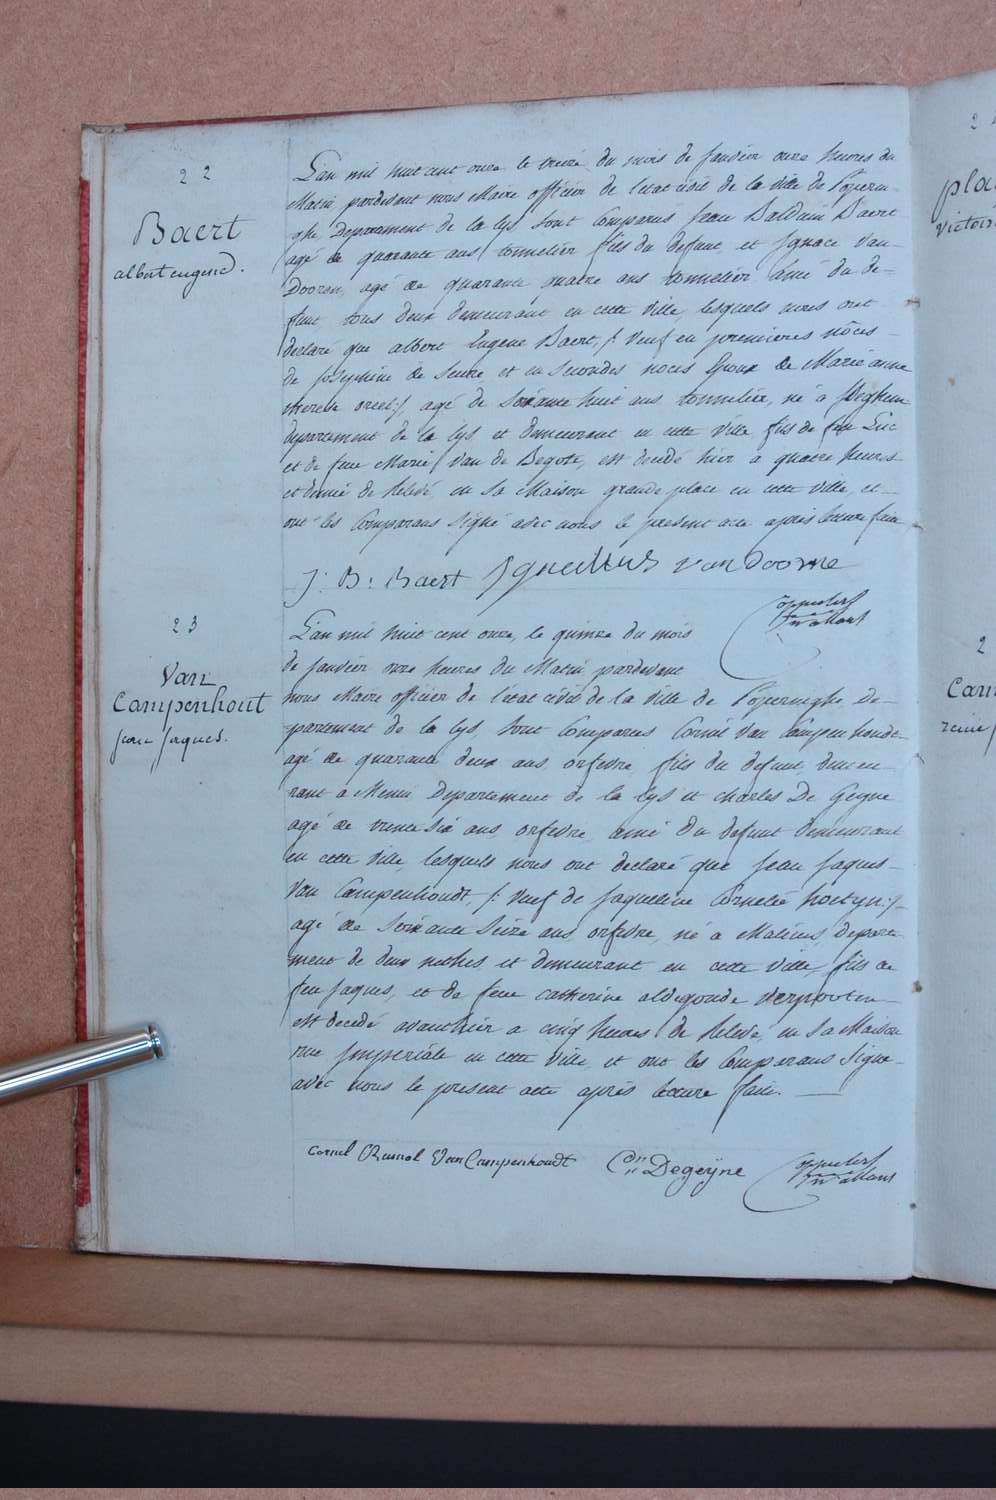 22
Baert
albert eugene.
L'an mil huit cent onze le treize du mois de Janvier onze heures du
Matin pardevant nous Maire officier de l'etat civil de la ville de Poperin-
ghe, Departement de la lys sont Comparus Jean Balduin Baert
agé de quarante ans tonnelier fils du defunt, et Ignace Van-
Dooren, agé de quarante quatre ans tonnelier ami du de-
funt tous deux demeurant en cette ville, lesquels nous ont
declaré que albert Eugene Baert, /: Veuf en premieres nôces
de Josephine de                et en secondes noces Epoux de Marie anne
therese             :/, agé de Soixante huit ans tonnelier, né à
departement de la lys et demeurant en cette ville fils de feu Luc
et de feue Marie Van de Begote, est decedé hier a quatre heures
et demie de Relevé, en sa Maison grande place en cette ville, et
ont les Comparans signé avec nous le present acte après lecture faite
J: B: Baert Ignatius van doorne
23
Van
Campenhout
Jean Jaques.
L'an mil huit cent onze, le quinze du mois
de Janvier onze heures du Matin pardevant
nous Maire officier de l'etat civil de la ville de Poperinghe De-
partement de la lys, sont Comparus Corneil Van Campenhoudt
agé de quarante deux ans, orfevre, fils du defunt, demeu-
rant à Menin Departement de la lys et Charles De Geyne
agé de trente six ans orfevre, ami du defunt demeurant
en cette ville, lesquels nous ont declaré que Jean Jaques
Van Campenhoudt, /: Veuf de Jaqueline Cornelie hoetyn :/
agé de Soixante Seize ans orfevre, né a Malines, departe-
ment de deux nethes, et demeurant en cette ville, fils de
feu Jaques, et de feue catherine aldegonde vernooten
est decedé avanthier a cinq heures de Relevé, en sa Maison
rue Imperiale en cette ville, et ont les Comparans Signé
avec nous le present acte après lecture faite.
Cornel Rumol Van Campenhoudt Ch Degeyne